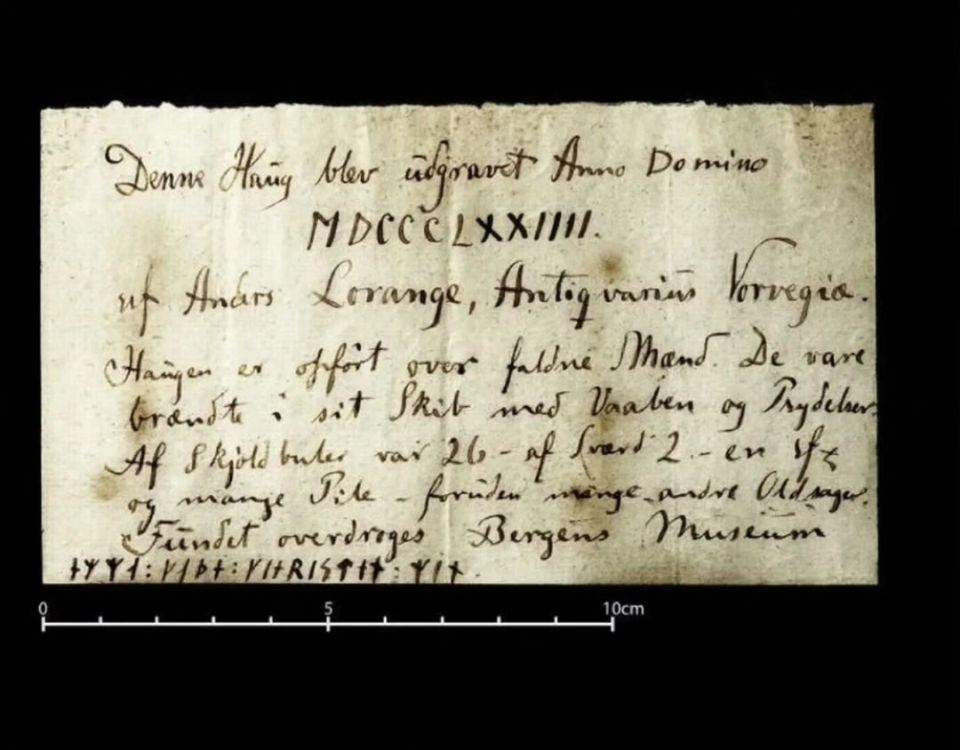 Denne Haug blev udgravet Anno Domino
MDCCCLXXIIII.
af Anders Lorange, Antiqvarius Norvegiæ.
Haugen er opført over faldne Mænd. De vare
brændte i sit Skib med Vaaben og Prydelser.
Af Skjoldbuler var 26 - af Sværd 2. - en
og mange Pile - foruden mange andre Oldsager.
Fundet overdroges Bergens Museum
0 5 10cm